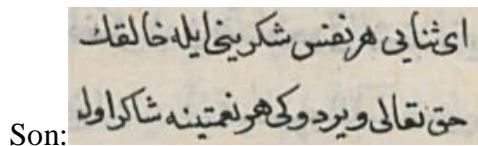 ای ثنایی هر نفس شکرینی ایله خالقك
Son: حق تعالی ویردوکی هر نعمتینه شاکر اول